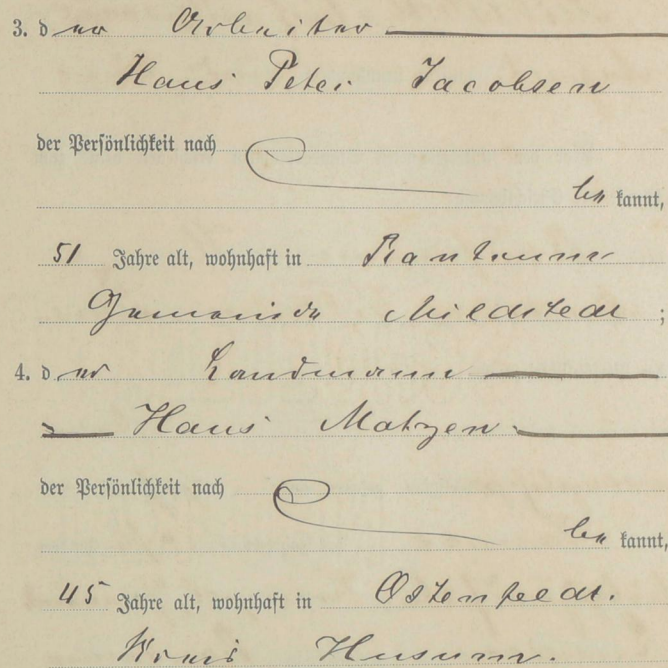 3. der Arbeiter
Hans Peter Jacobsen
der Persönlichkeit nach
be kannt,
51 Jahre alt, wohnhaft in Rantrum
Gemeinde Mildstedt ;
4. der Landmann
Hans Matzen
der Persönlichkeit nach
be kannt,
45 Jahre alt, wohnhaft in Ostenfeld.
Kreis Husum.